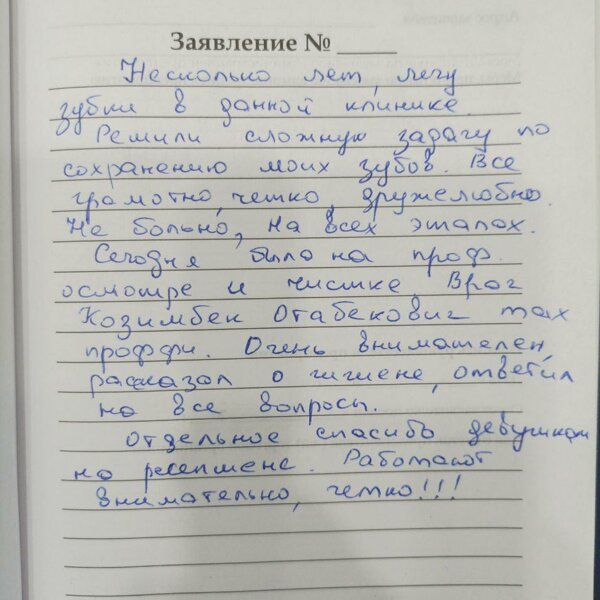 Заявление № ____
Несколько лет, лечу
зубки в данной клинике.
Решили сложную задачу по
сохранению моих зубов. Все
грамотно, четко, дружелюбно.
Не больно, на всех этапах.
Сегодня была на проф.
осмотре и чистке. Врач
Козимбек Отабекович max
проффи. Очень внимателен,
рассказал о гигиене, ответил
на все вопросы.
Отдельное спасибо девушкам
на ресепшене. Работают
внимательно, четко!!!